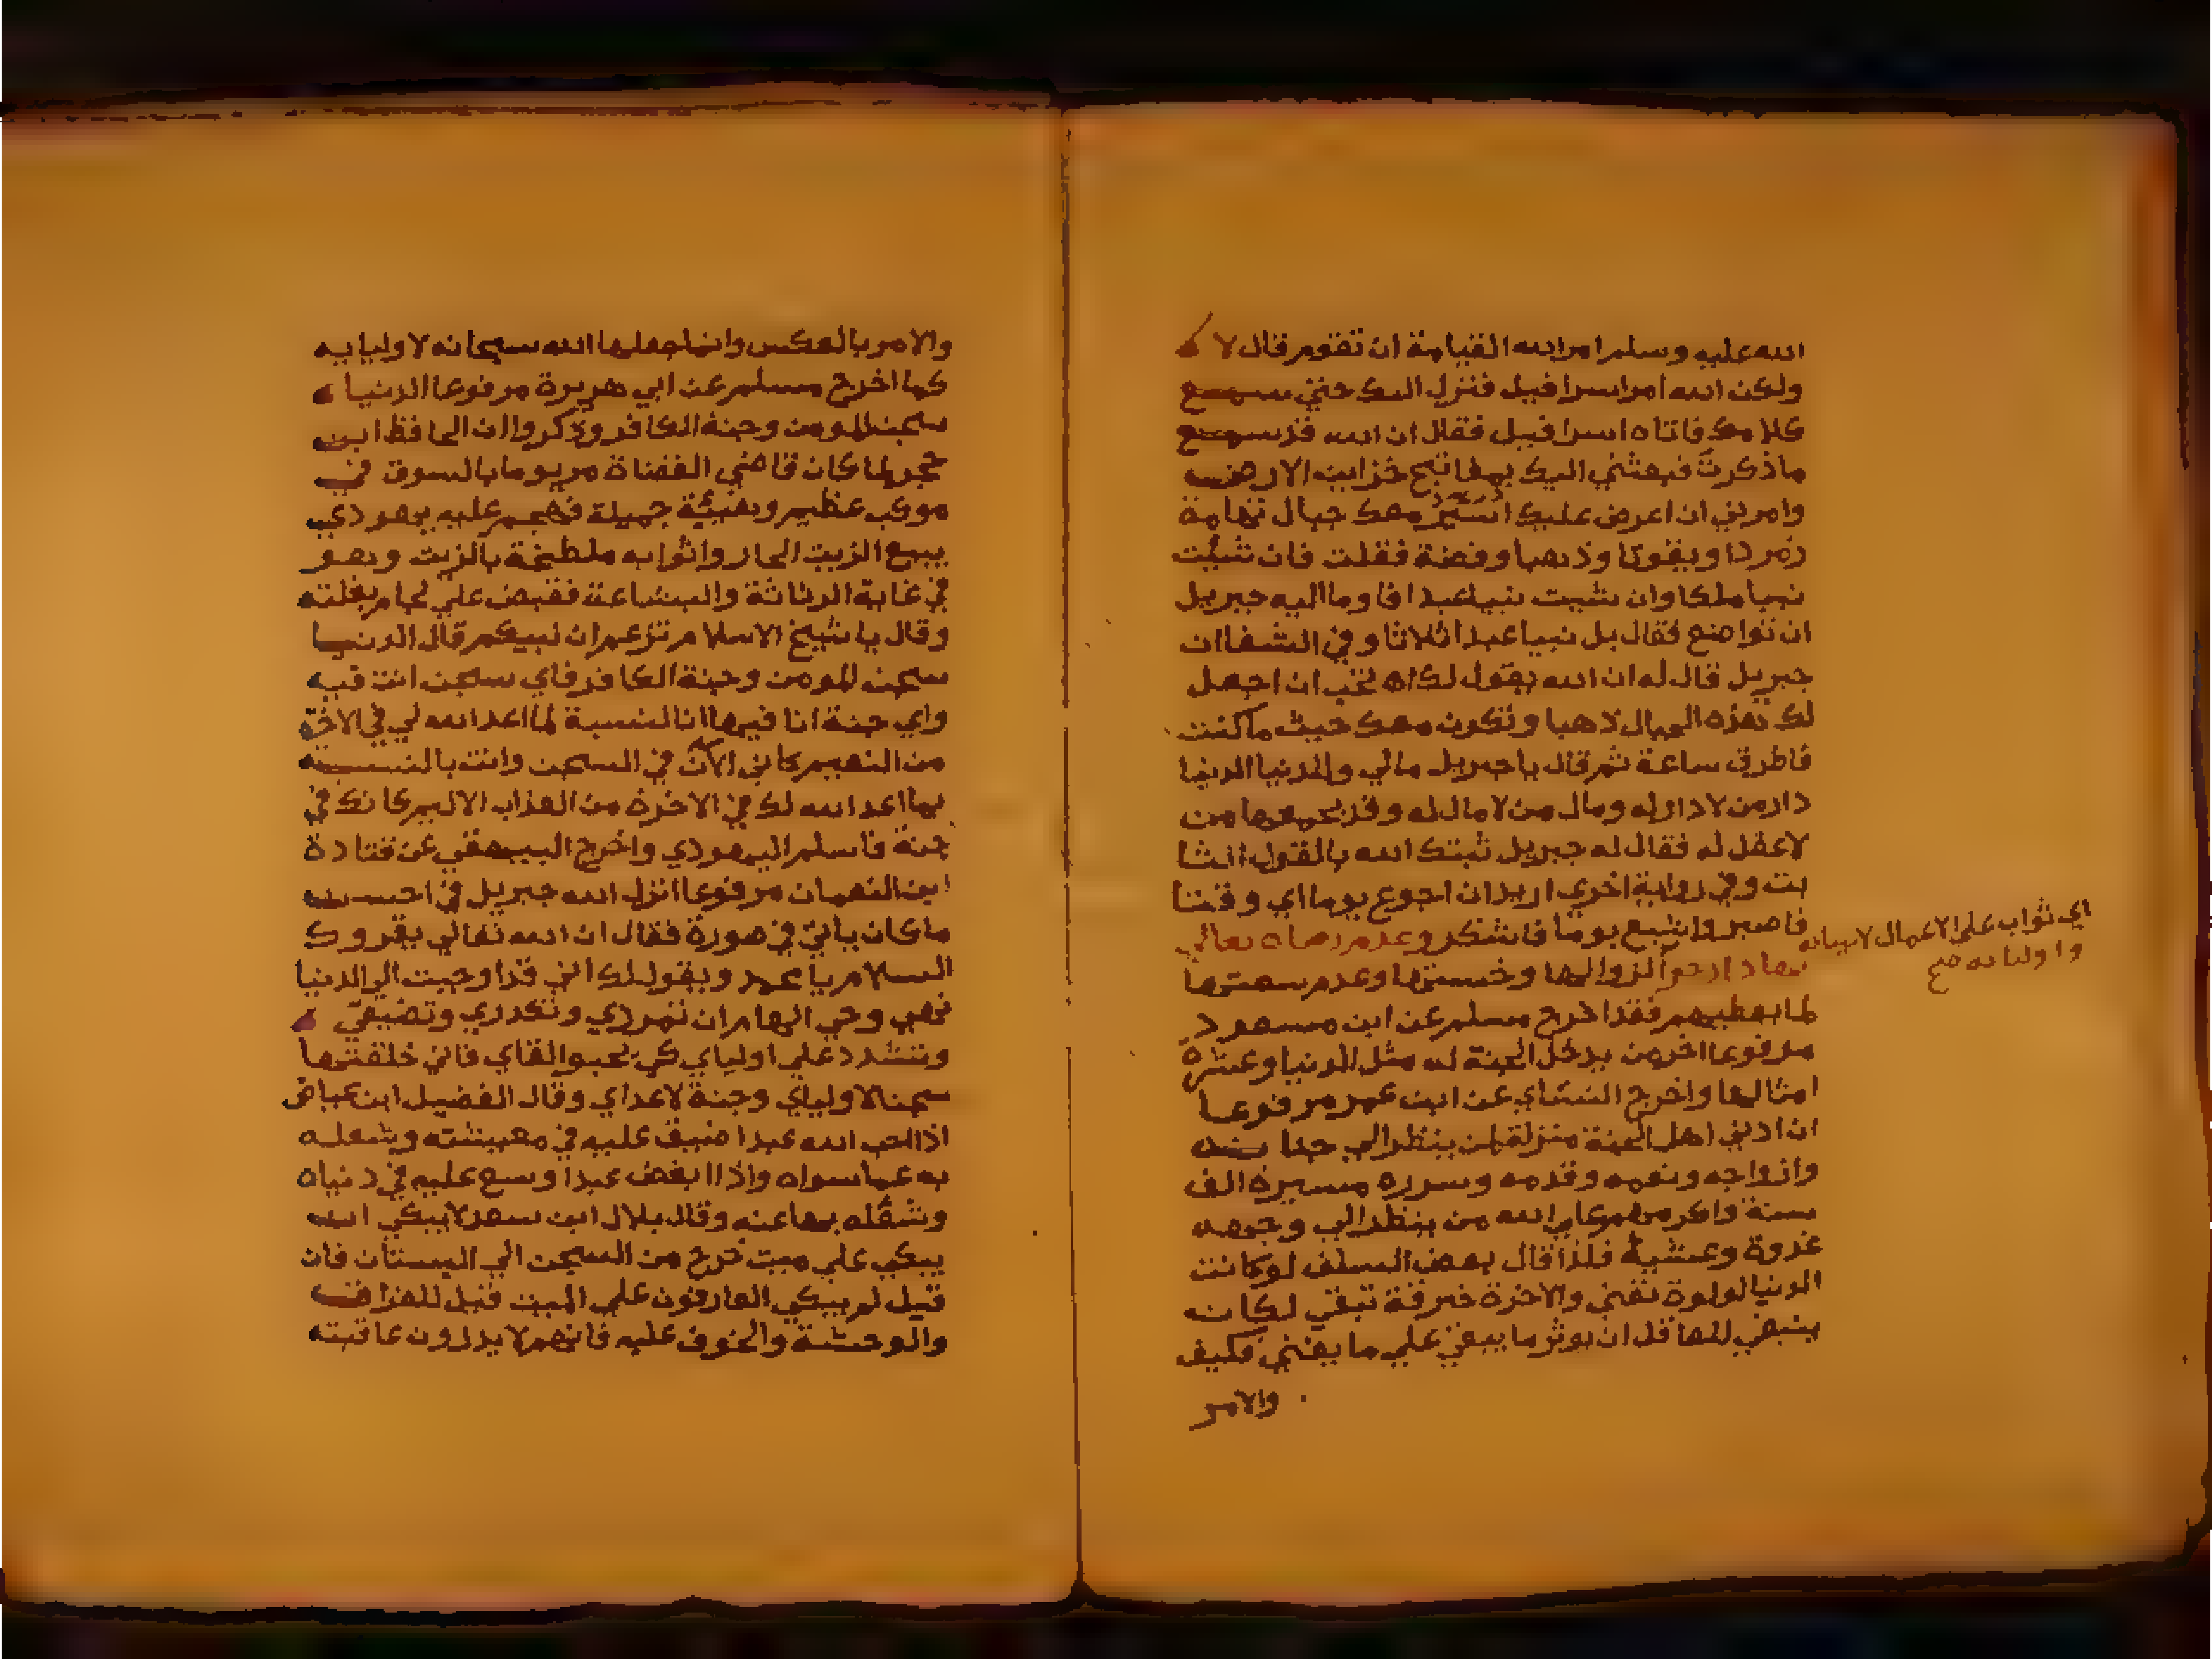 الله عليه وسلم امر الله القيامة ان تقوم قال لا
ولكن الله امر اسرافيل فنزل اليك حتي سمع
كلامك فاتاه اسرافيل فقال ان الله قد سمع
ما ذكرت فبعثني اليك بمفاتيح خزاين الارض
وامرني ان اعرض عليك اسير معك جبال تهامة
زمردا وياقوتا وذهبا وفضة فقلت فان شيت
نبيا ملكا وان شيت نبيا عبدا فاوما اليه جبريل
ان تواضع فقال بل نبيا عبدا ثلاثا وفي الشفا ان
جبريل قال له ان الله يقول لك اتحب ان اجعل
لك هذه الجبال ذهبا وتكون معك حيث ما كنت
فاطرق ساعة ثم قال يا جبريل مالي وللدنيا الدنيا
دار من لا دار له ومال من لا مال له وقد يجمعها من
لا عقل له فقال له جبريل ثبتك الله بالقول الثا
بت وفي رواية اخري اريد ان اجوع يوما اي وقتا
فاصبر واشبع يوما فاشكر وعدم رضاه تعالي
بها دار لزوالها وخستها وعدم سعتها
اي ثواب علي الاعمال لانبيائه
واوليائه صح
لما يعطيهم فقد اخرج مسلم عن ابن مسعود
مرفوعا اخر من يدخل الجنة له مثل الدنيا وعشرة
امثالها واخرج النساي عن ابن عمر مرفوعا
ان ادني اهل الجنة منزلة لمن ينظر الي جنانه
وازواجه ونعمه وخدمه وسرره مسيرة الف
سنة واكرمهم علي الله من ينظر الي وجهه
غدوة وعشية فلذا قال بعض السلف لو كانت
الدنيا لولوة تفني والاخرة خزفة تبقي لكان
ينبغي للعاقل ان يوثر ما يبقي علي ما يفني فكيف
والامر
والامر بالعكس وانما جعلها الله سبحانه لاوليايه
كما اخرج مسلم عن ابي هريرة مرفوعا الدنيا
سجن المومن وجنة الكافر وذكروا ان الحافظ ابن
حجر لما كان قاضي القضاة مر يوما بالسوق في
موكب عظيم وهيئة جميلة فهجم عليه يهودي
يبيع الزيت الحار واثوابه ملطخة بالزيت وهو
في غاية الرثاثة والبشاعة فقبض علي لجام بغلته
وقال يا شيخ الاسلام تزعم ان نبيكم قال الدنيا
سجن المومن وجنة الكافر فاي سجن انت فيه
واي جنة انا فيها انا لنسبة لما اعد الله لي في الاخرة
من النعيم كاني الان في السجن وانت بالنسبة
بما اعد الله لك في الاخرة من العذاب الاليم كانك في
جنة فاسلم اليهودي واخرج البيهقي عن قتادة
ابن النعمان مرفوعا انزل الله جبريل في احسن
ما كان ياتي في صورة فقال ان الله تعالي يقروك
السلام يا محمد ويقول لك اني قد اوحيت الي الدنيا
فهي وحي الهام ان تمرري وتكدري وتضيقي
وتشددي علي اولياي كي يحبو القاي فاني خلقتها
سجنا لاولياي وجنة لاعداي وقال الفضيل ابن عياض
اذا احب الله عبدا ضيق عليه في معيشته وشغله
به عما سواه واذا ابغض عبدا وسع عليه في دنياه
وشغله بها عنه وقال بلال ابن سعد لا يبكي الله
يبكي علي ميت خرج من السجن الي البستان فان
قيل لم يبكي العارفون علي الميت قيل للفراق
والوحشة والخوف عليه فانهم لا يدرون عاقبته